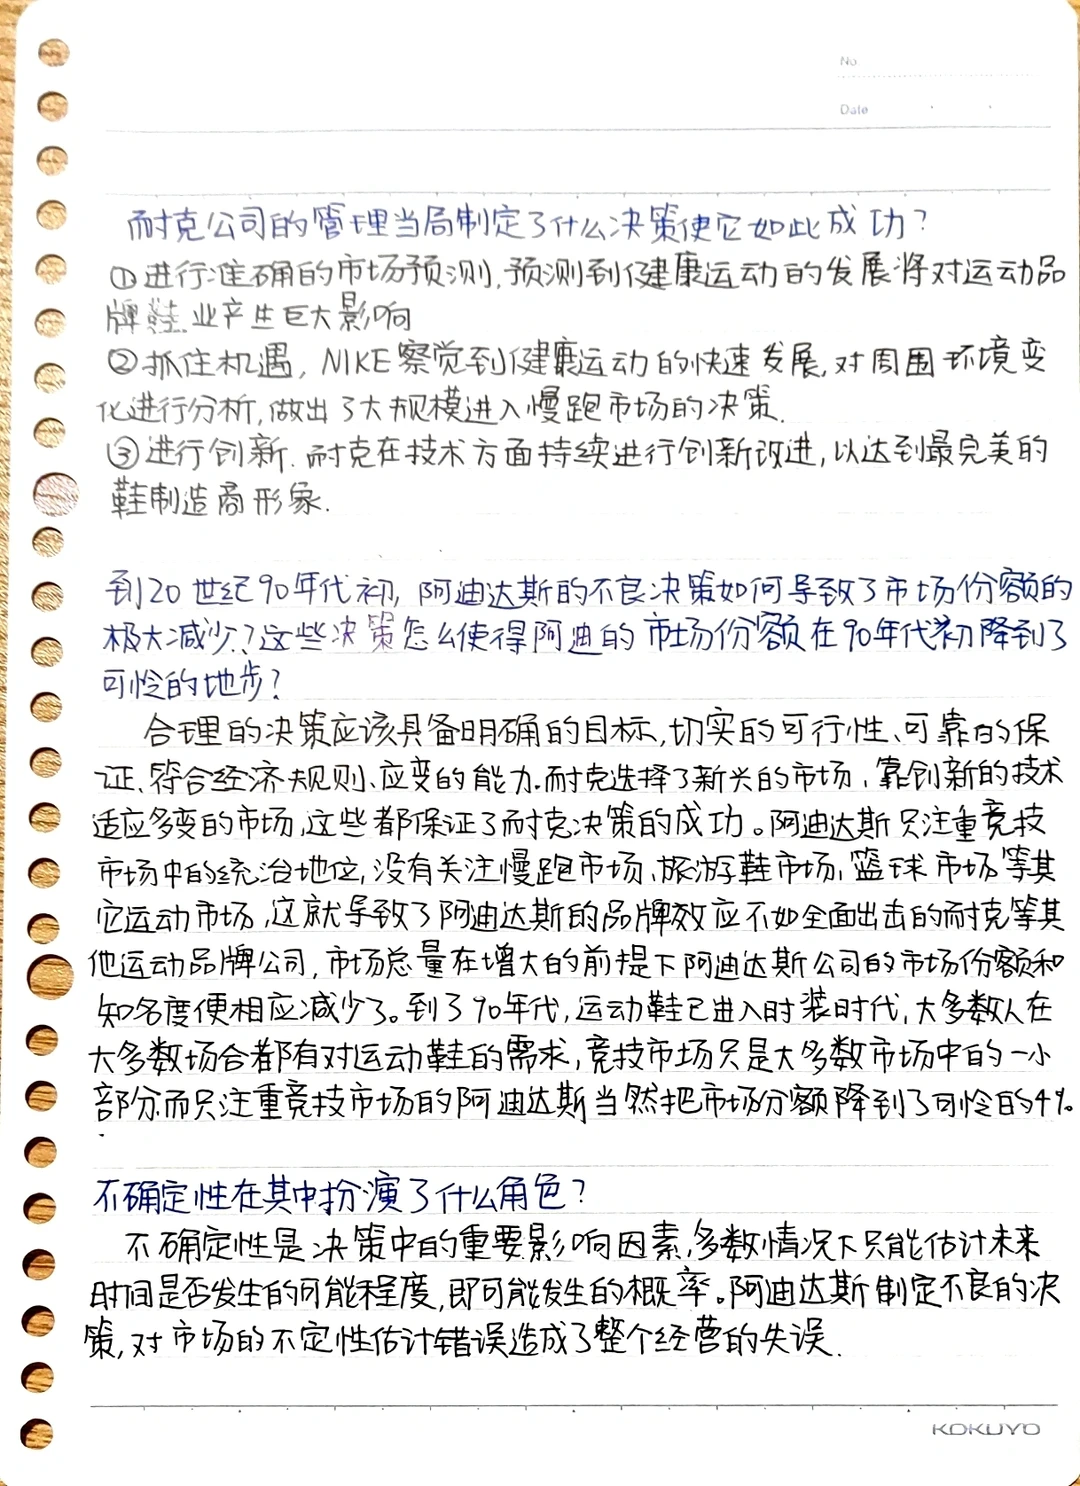 No
Date
耐克公司的管理当局制定了什么决策使它如此成功?
①进行准确的市场预测,预测到健康运动的发展将对运动品
牌鞋业产生巨大影响
②抓住机遇,NIKE察觉到健康运动的快速发展,对周围环境变
化进行分析,做出了大规模进入慢跑市场的决策.
③进行创新.耐克在技术方面持续进行创新改进,以达到最完美的
鞋制造商形象.
到20世纪90年代初,阿迪达斯的不良决策如何导致了市场份额的
极大减少?这些决策怎么使得阿迪的市场份额在90年代初降到了
可怜的地步?
合理的决策应该具备明确的目标,切实的可行性、可靠的保
证、符合经济规则、应变的能力.耐克选择了新兴的市场,靠创新的技术
适应多变的市场,这些都保证了耐克决策的成功。阿迪达斯只注重竞技
市场中的统治地位,没有关注慢跑市场、旅游鞋市场、篮球市场等其
它运动市场,这就导致了阿迪达斯的品牌效应不如全面出击的耐克等其
他运动品牌公司,市场总量在增大的前提下阿迪达斯公司的市场份额和
知名度便相应减少了。到了90年代,运动鞋已进入时装时代,大多数人在
大多数场合都有对运动鞋的需求,竞技市场只是大多数市场中的一小
部分.而只注重竞技市场的阿迪达斯当然把市场份额降到了可怜的4%.
不确定性在其中扮演了什么角色?
不确定性是决策中的重要影响因素,多数情况下只能估计未来
时间是否发生的可能程度,即可能发生的概率。阿迪达斯制定不良的决
策,对市场的不定性估计错误造成了整个经营的失误.
KOKUYO